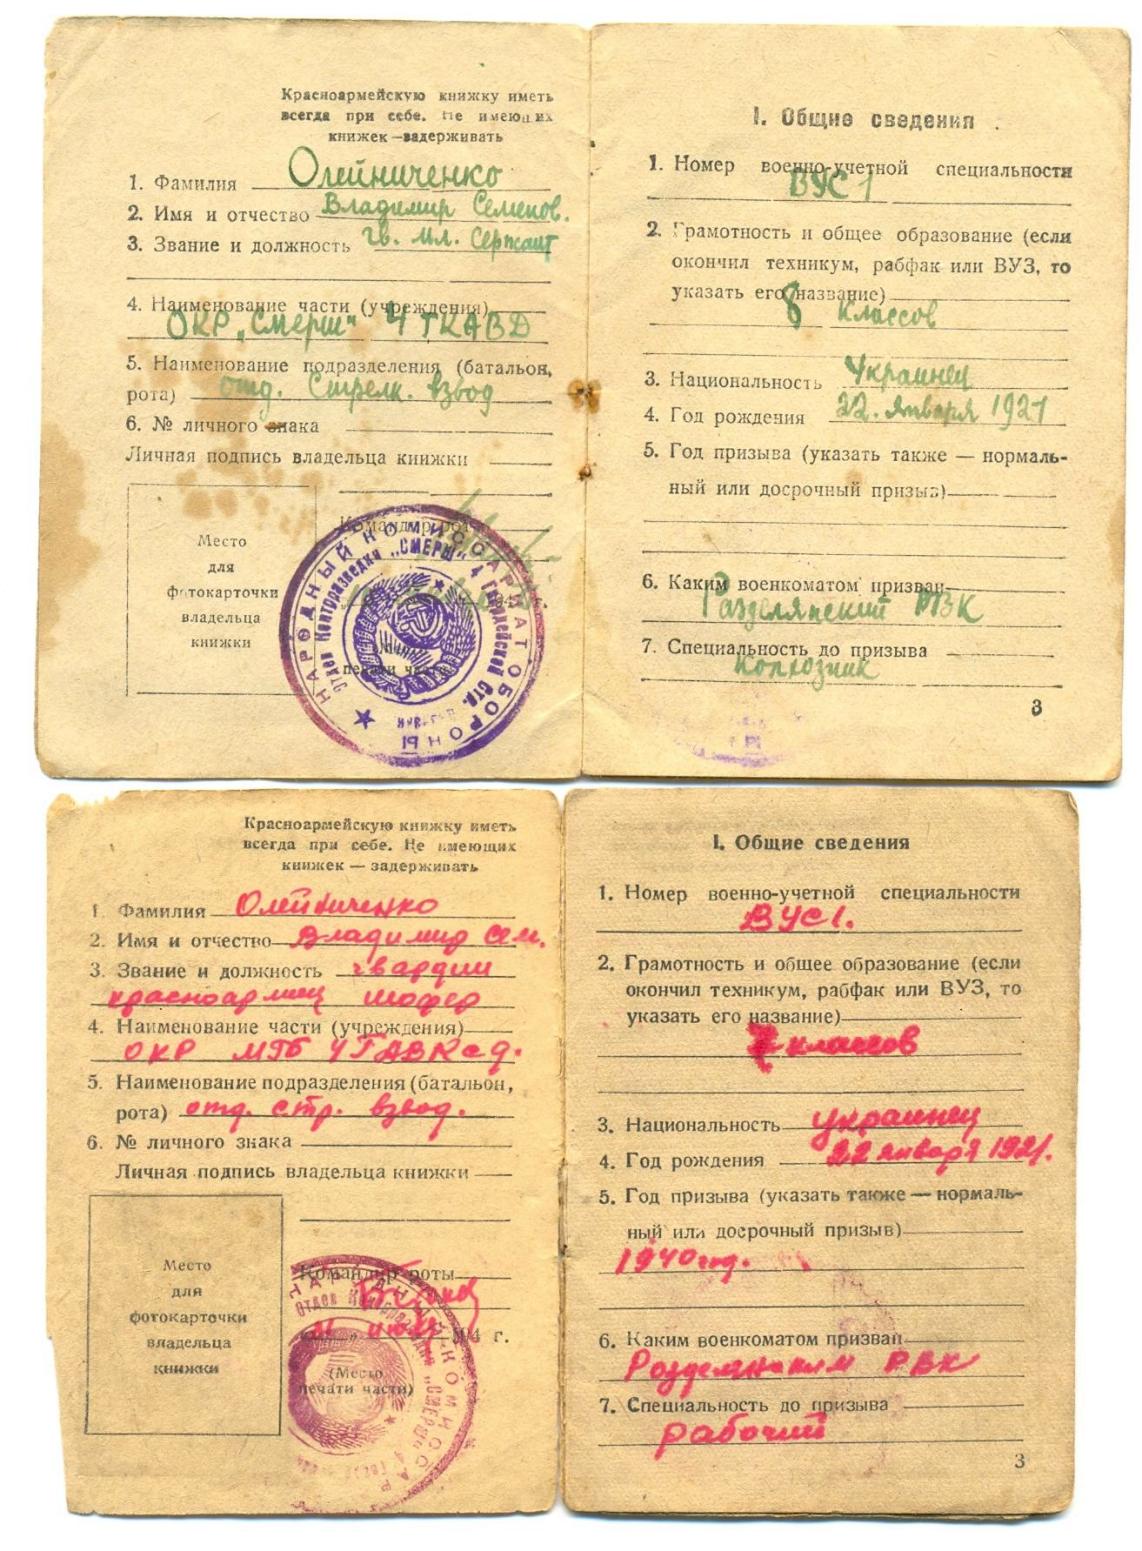 Красноармейскую книжку иметь
всегда при себе. Не имеющих
книжек — задерживать
1. Фамилия Олейниченко
2. Имя и отчество Владимир Семенов.
3. Звание и должность гв. мл. Сержант
4. Наименование части (учреждения)
ОКР „Смерш" 4 ГКАВД
5. Наименование подразделения (батальон,
рота) отд. Стрелк. взвод
6. № личного знака
Личная подпись владельца книжки
Место
для
фотокарточки
владельца
книжки
Командир роты
печати части
НАРОДНЫЙ КОМИССАРИАТ ОБОРОНЫ
Отдел Контрразведки „СМЕРШ" 4 Гвардейской
I. Общие сведения
1. Номер военно-учетной специальности
ВУС 1
2. Грамотность и общее образование (если
окончил техникум, рабфак или ВУЗ, то
указать его название)
8 классов
3. Национальность Украинец
4. Год рождения 22. января 1921
5. Год призыва (указать также — нормаль-
ный или досрочный призыв)
6. Каким военкоматом призван
Разделянский РВК
7. Специальность до призыва
Колхозник
3
Красноармейскую книжку иметь
всегда при себе. Не имеющих
книжек — задерживать
1. Фамилия Олейниченко
2. Имя и отчество Владимир Сем.
3. Звание и должность гвардии
красноармеец шофер
4. Наименование части (учреждения)
ОКР МГБ 4 ГАВКсд.
5. Наименование подразделения (батальон,
рота) отд. стр. взвод.
6. № личного знака
Личная подпись владельца книжки
Место
для
фотокарточки
владельца
книжки
Командир роты
194 г.
(Место
печати части)
НАРОДНЫЙ КОМИССАР
Отдел „СМЕРШ" 4
I. Общие сведения
1. Номер военно-учетной специальности
ВУС1.
2. Грамотность и общее образование (если
окончил техникум, рабфак или ВУЗ, то
указать его название)
7 классов
3. Национальность украинец
4. Год рождения 22 января 1921.
5. Год призыва (указать также — нормаль-
ный или досрочный призыв)
1940 год.
6. Каким военкоматом призван
Розделнянским РВК
7. Специальность до призыва
рабочий
3